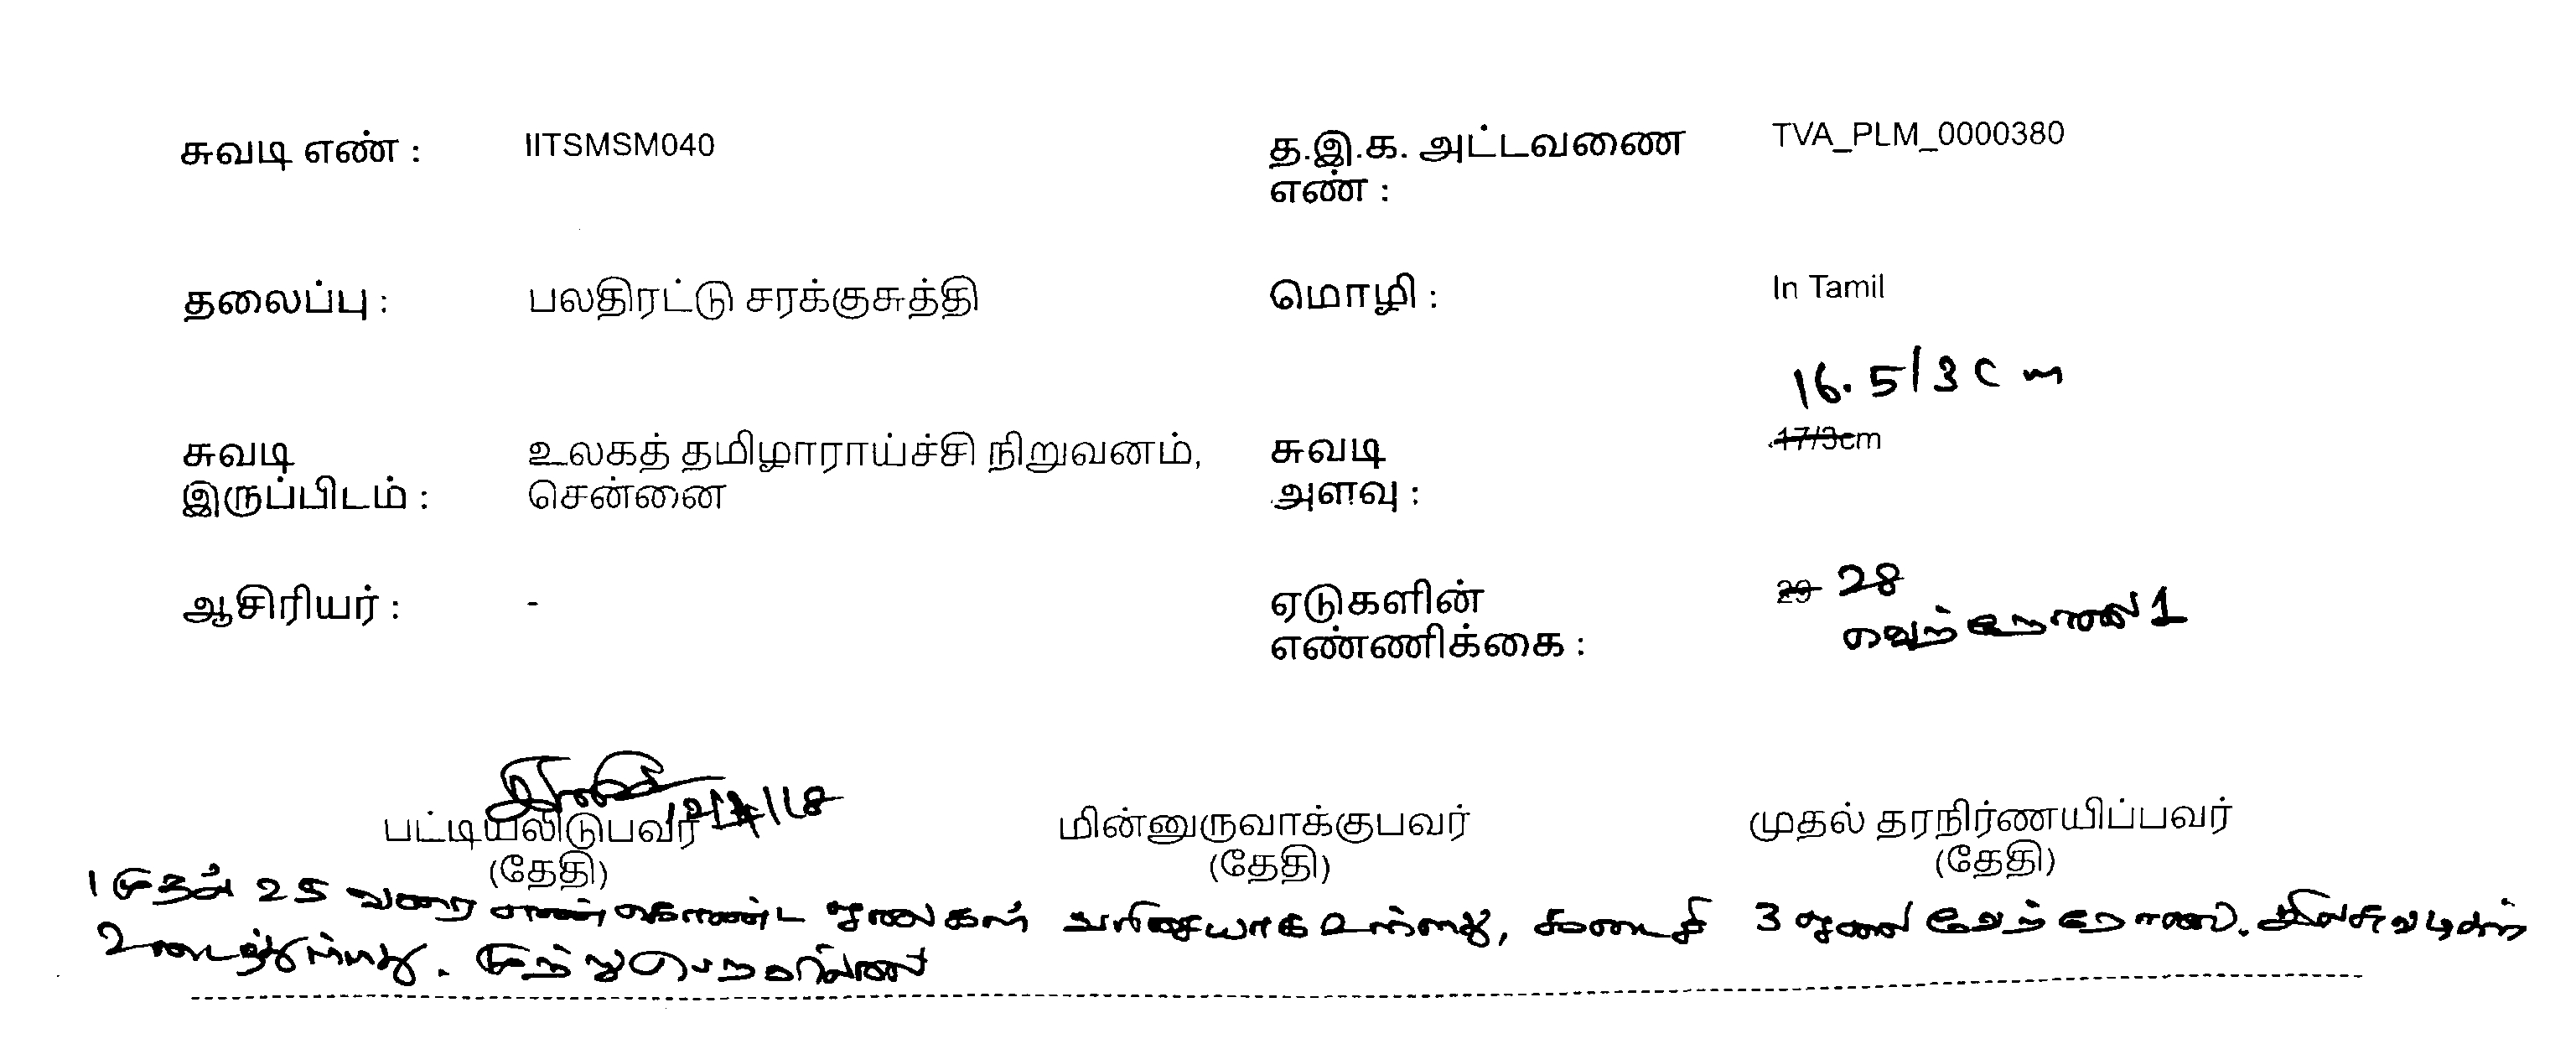 சுவடி எண் : IITSMSM040 த.இ.க. அட்டவணை TVA_PLM_0000380
எண் :
தலைப்பு : பலதிரட்டு சரக்குசுத்தி மொழி : In Tamil
16.5/3cm
சுவடி உலகத் தமிழாராய்ச்சி நிறுவனம், சுவடி 17/3cm
இருப்பிடம் : சென்னை அளவு :
ஆசிரியர் : - ஏடுகளின் 29 28
எண்ணிக்கை : வெற்றோலை 1
பட்டியலிடுபவர் மின்னுருவாக்குபவர் முதல் தரநிர்ணயிப்பவர்
(தேதி) (தேதி) (தேதி)
1 முதல் 25 வரை எண் கொண்ட ஓலைகள் வரிசையாக உள்ளது, கடைசி 3 ஓலை வேற்றோலை. சில சுவடிகள்
உடைந்துள்ளது. முற்றுபெறவில்லை